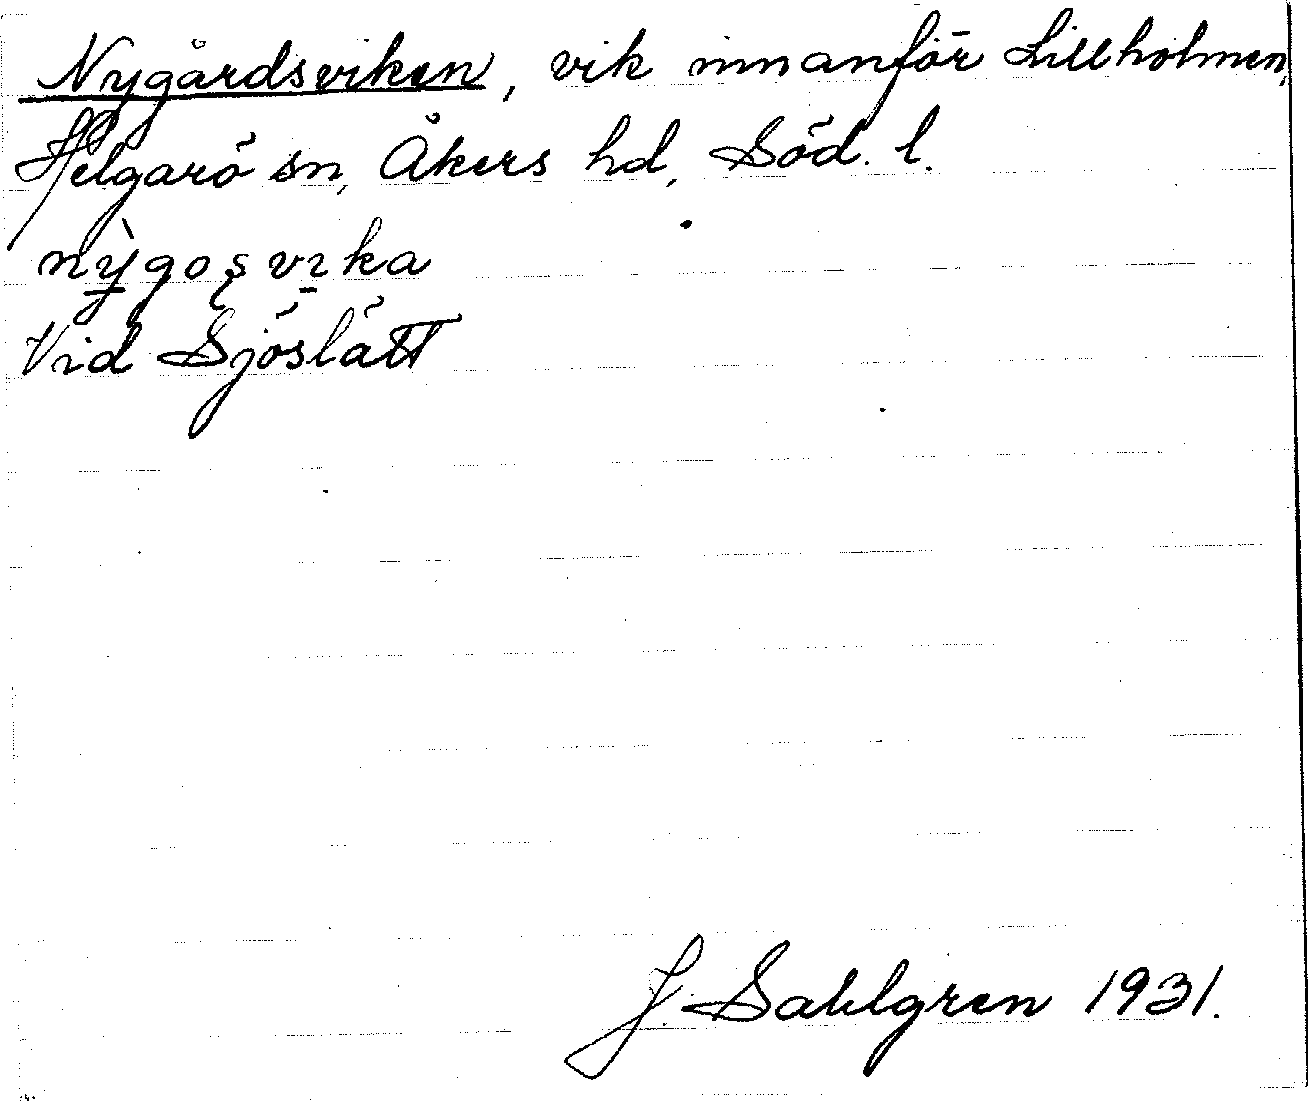 Nygårdsviken, vik innanför Lillholmen,
Helgarö sn, Åkers hd, Söd. l.
nỳgoş vıka
Vid Sjöslätt
J. Sahlgren 1931.